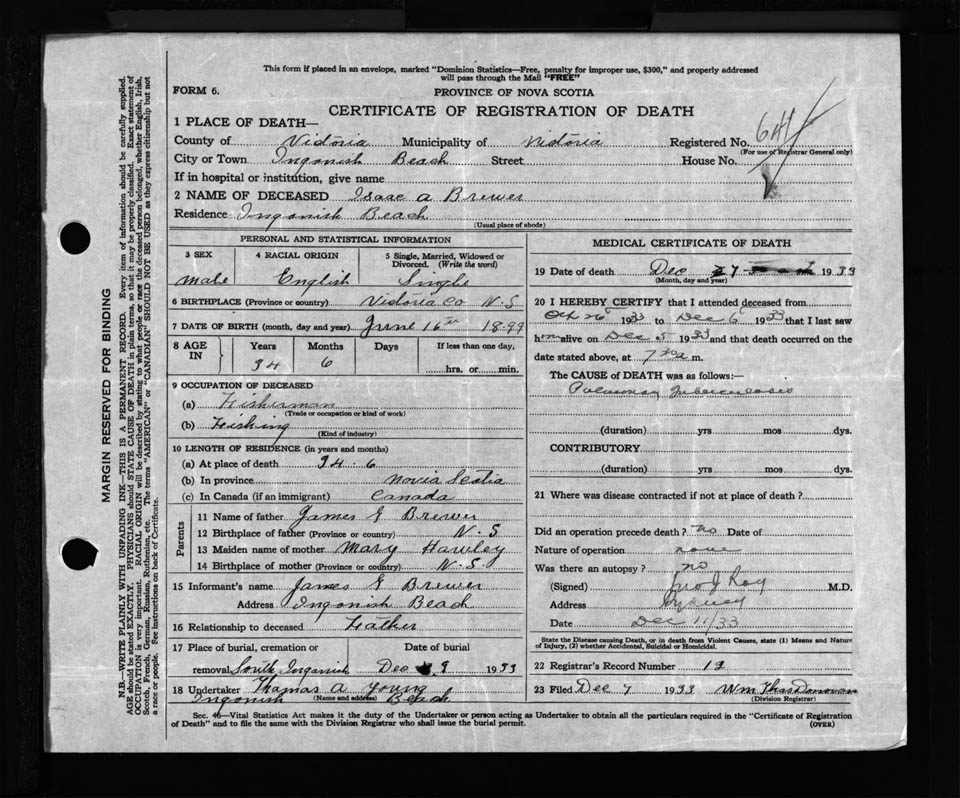 This form if placed in an envelope, marked "Dominion Statistics—Free, penalty for improper use, $300," and properly addressed
will pass through the Mail "FREE"
FORM 6.
PROVINCE OF NOVA SCOTIA
CERTIFICATE OF REGISTRATION OF DEATH
1 PLACE OF DEATH—
County of Victoria Municipality of Victoria Registered No.
(For use of Registrar General only)
City or Town Ingonish Beach Street House No.
If in hospital or institution, give name
2 NAME OF DECEASED Isaac A Brewer
Residence Ingonish Beach
(Usual place of abode)
PERSONAL AND STATISTICAL INFORMATION
3 SEX 4 RACIAL ORIGIN 5 Single, Married, Widowed or Divorced. (Write the word)
Male English Single
6 BIRTHPLACE (Province or country) Victoria Co N.S
7 DATE OF BIRTH (month, day and year) June 16th 1899
8 AGE IN Years Months Days If less than one day,
34 6 hrs. or min.
9 OCCUPATION OF DECEASED
(a) Fisherman
(Trade or occupation or kind of work)
(b) Feishing
(Kind of industry)
10 LENGTH OF RESIDENCE (in years and months)
(a) At place of death 34-6
(b) In province Novia Scotia
(c) In Canada (if an immigrant) Canada
Parents
11 Name of father James E Brewer
12 Birthplace of father (Province or country) N.S
13 Maiden name of mother Mary Hawley
14 Birthplace of mother (Province or country) N.S.
15 Informant's name James E Brewer
Address Ingonish Beach
16 Relationship to deceased Father
17 Place of burial, cremation or removal South Ingonish Date of burial Dec 9 1933
18 Undertaker Thomas A Young
(Name and address)
Ingonish Beach
MEDICAL CERTIFICATE OF DEATH
19 Date of death Dec 7 1933
(Month, day and year)
20 I HEREBY CERTIFY that I attended deceased from
Oct 26 1933 to Dec 6 1933 that I last saw
him alive on Dec 5 1933 and that death occurred on the
date stated above, at 7 a m.
The CAUSE of DEATH was as follows:
Pulmonary Tuberculosis
(duration) yrs mos dys.
CONTRIBUTORY
(duration) yrs mos dys.
21 Where was disease contracted if not at place of death?
Did an operation precede death? no Date of
Nature of operation none
Was there an autopsy? no
(Signed) Roy M.D.
Address Sydney
Date Dec 11/33
State the Disease causing Death, or in death from Violent Causes, state (1) Means and Nature
of Injury, (2) whether Accidental, Suicidal or Homicidal.
22 Registrar's Record Number 12
23 Filed Dec 7 1933 Wm Thos Donovan
(Division Registrar)
Sec. 46—Vital Statistics Act makes it the duty of the Undertaker or person acting as Undertaker to obtain all the particulars required in the "Certificate of Registration
of Death" and to file the same with the Division Registrar who shall issue the burial permit.
(OVER)
MARGIN RESERVED FOR BINDING
N.B.—WRITE PLAINLY WITH UNFADING INK—THIS IS A PERMANENT RECORD. Every item of information should be carefully supplied.
AGE should be stated EXACTLY. PHYSICIANS should STATE CAUSE OF DEATH in plain terms, so that it may be properly classified. Exact statement of
OCCUPATION is very important. RACIAL ORIGIN will be described by stating to what people or race the deceased person belonged, whether English, Irish,
Scotch, French, German, Russian, Ruthenian, etc. The terms "AMERICAN" or "CANADIAN" SHOULD NOT BE USED as they express citizenship but not
a race or people. See instructions on back of Certificate.